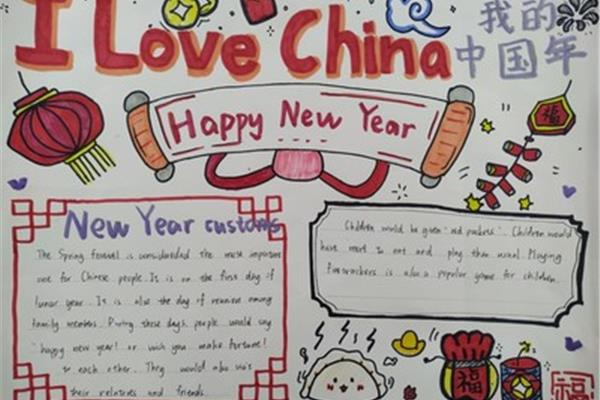 I Love China
我的
中国年
Happy New Year
福
New Year customs
The Spring festival is considerdad the most important
one for Chinese people. It is on the first day of
lunar year. It is also the day of reunion among
family members. During these days, people would say
"happy new year! or wish you make fortune!
to each other. They would also visit
their relatives and friends.
Children would be given "red packets". Children would
have more to eat and play than usual. Playing
firecrackers is also a popular game for children.
福
福